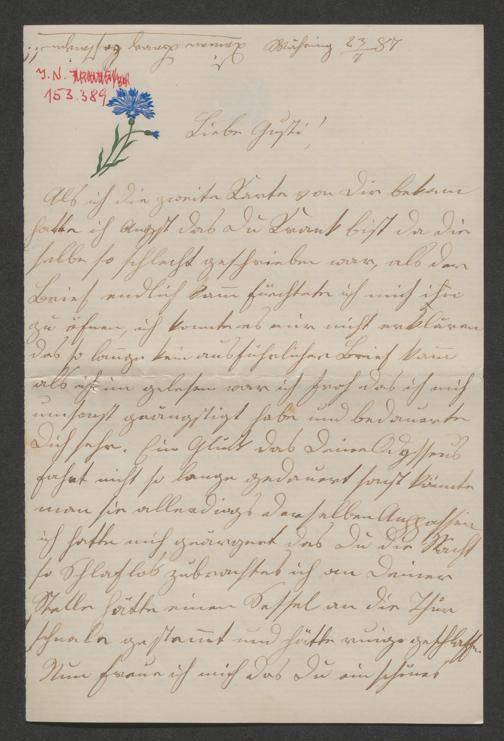 Währing 23/7 87
J. N.
153.389
Liebe Gusti!
Als ich die zweite Karte von Dir bekam
hatte ich Angst das Du Krank bist da die
selbe so schlecht geschrieben war, als der
Brief endlich kam fürchtete ich mich ihn
zu öfnen, ich konnte es mir nicht erklären
das so lange kein ausführlicher Brief kam
als ich im gelesen war ich froh das ich mich
umsonst geängstigt habe und bedauerte
Dich sehr. Ein Glück das Deine Odysseus
fahrt nicht so lange gedauert sonst könnte
man sie allerdings derselben Anpassen
ich hatte mich geärgert das Du die Nacht
so Schlaflos zubrachtest ich an Deiner
Stelle hätte einen Sessel an die Thür
schnale gestemmt und hätte ruhig geschlafen
Nun freue ich mich das Du ein schönes